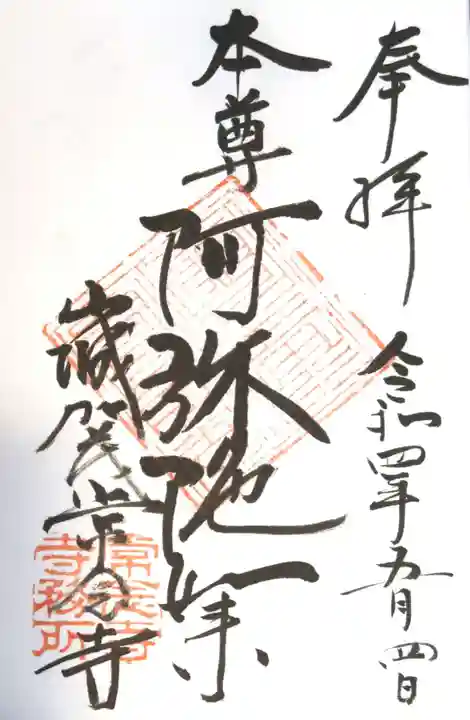 奉拝 令和四年五月四日
本尊 阿弥陀如来
常念寺
常念寺
寺務所